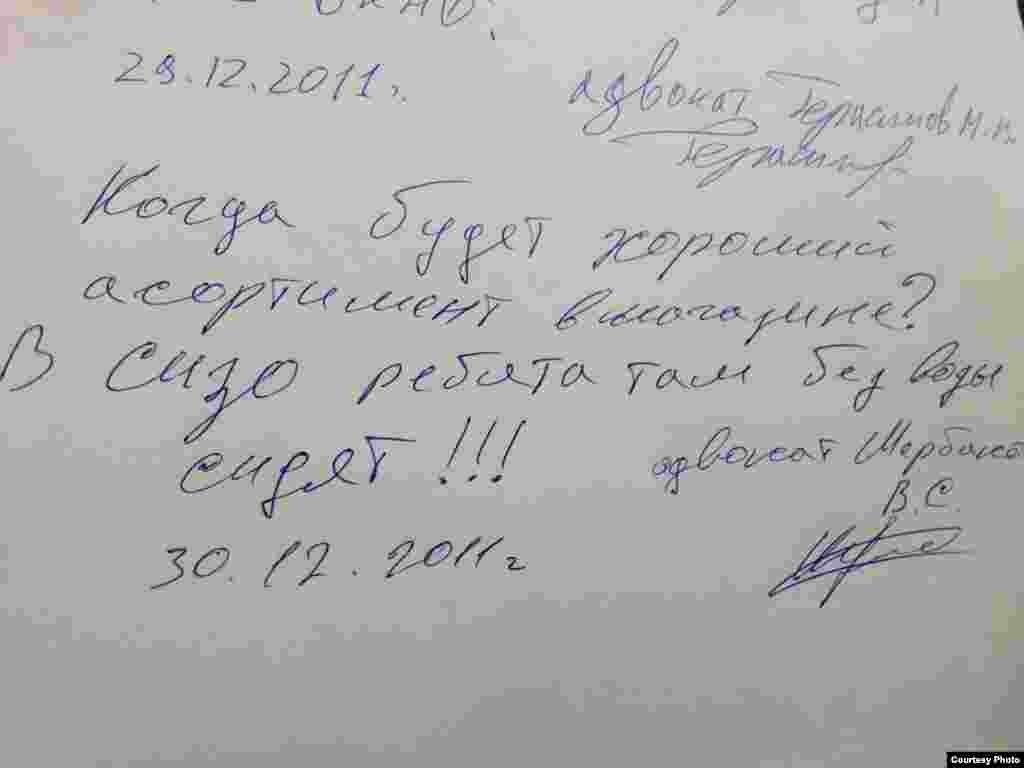 29.12.2011г.
адвокат Герасимов Н.Н.
Когда будет хороший
асортимент в магазине?
В СИЗО ребята там без воды
сидят!!!
адвокат Щербаков
В.С.
30.12.2011г
Courtesy Photo